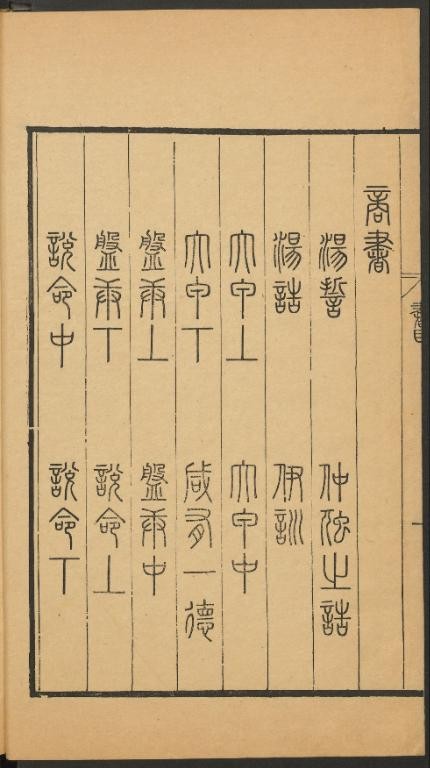 商書
湯誓 仲虺之誥
湯誥 伊訓
太甲上 太甲中
太甲下 咸有一德
盤庚上 盤庚中
盤庚下 說命上
說命中 說命下